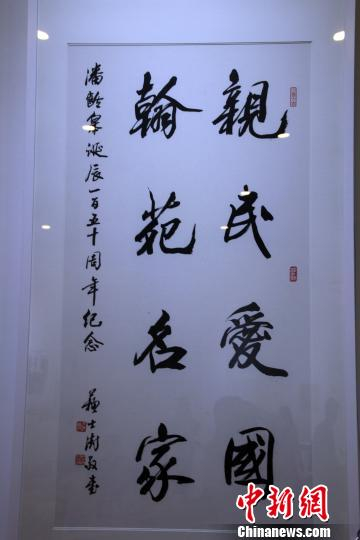 親民愛國
翰苑名家
潘齡皋誕辰一百五十周年纪念
蘇士澍敬書
中新网
www.chinanews.com